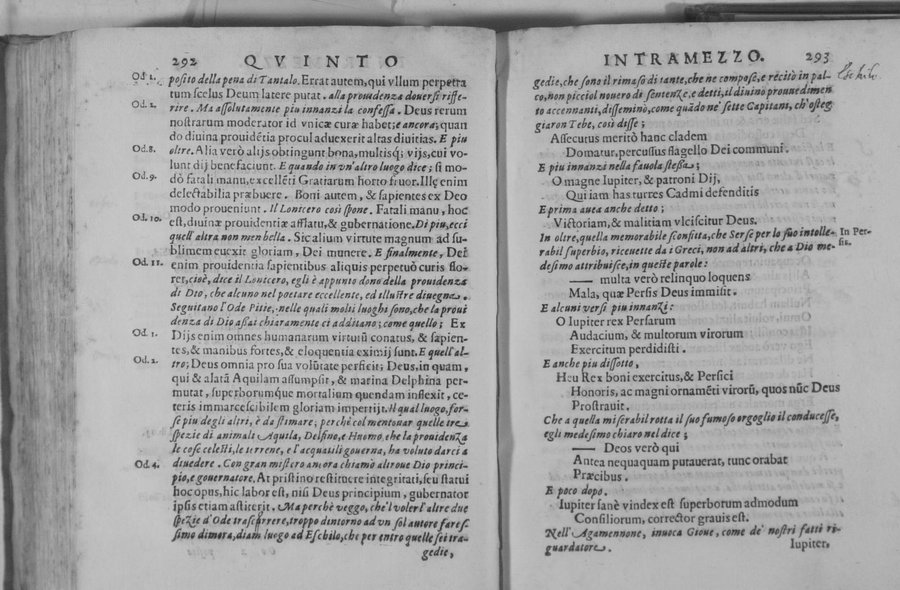 292 QVINTO
Od 1. posito della pena di Tantalo. Errat autem, qui vllum perpetra
tum scelus Deum latere putat. alla prouidenza douersi riffe-
Od 2. rire. Ma assolutamente piu innanzi la confessa. Deus rerum
nostrarum moderator id vnicæ curæ habet; e ancora; quan
do diuina prouidētia procul aduexerit altas diuitias. E piu
Od.8. oltre. Alia verò alijs obtingunt bona, multisq; vijs, cui vo-
lunt dij benefaciunt. E quando in vn'altro luogo dice; si mo-
Od.9. dò fatali manu, excellēti Gratiarum horto fruor. Illę enim
delectabilia præbuere. Boni autem, & sapientes ex Deo
modo proueniunt. il Lonicero così spone. Fatali manu, hoc
Od.10. est, diuinæ prouidentiæ afflatu, & gubernatione. Di piu, ecci
quell'altra non men bella. Sic alium virtute magnum ad su-
blimem euexit gloriam, Dei munere. E finalmente, Dei
Od.11. enim prouidentia sapientibus aliquis perpetuò curis flo-
ret, cioè, dice il Lonicero, egli è appunto dono della prouidenza
di Dio, che alcuno nel poetare eccellente, ed illustre diuegna.
Seguitano l'Ode Pitie, nelle quali molti luoghi sono, che la proui
denza di Dio assai chiaramente ci additano; come quello; Ex
Od. 1. Dijs enim omnes humanarum virtutū conatus, & sapien-
tes, & manibus fortes, & eloquentia eximij sunt. E quell'al-
Od.2. tro; Deus omnia pro sua volūtate perficit; Deus, in quam,
qui & alatā Aquilam assumpsit, & marina Delphina per-
mutat, superborumque mortalium quendam inflexit, ce-
teris immarcescibilem gloriam impertijt. Il qual luogo, for-
se piu degli altri, è da stimare; perchè col mentouar quelle tre
spezie di animali Aquila, Delfino, e Huomo, che la prouidenza
le cose celesti, le terrene, e l'acquatili gouerna, ha voluto darci a
Od.4. diuedere. Con gran mistero ancora chiamò altroue Dio princi-
pio, e gouernatore. At pristino restituere integritati, seu statui
hoc opus, hic labor est, nisi Deus principium, gubernator
ipsis etiam astiterit. Ma perchè veggo, che'l voler l'altre due
spezie d'Ode trascorrere, troppo dintorno ad vn sol autore fares-
simo dimora, diam luogo ad Eschilo, che per entro quelle sei tra-
gedie,
INTRAMEZZO. 293
gedie, che sono il rimaso di tante, che ne compose, e récitò in pal-
co, non picciol nouero di sentenze, e detti, il diuino prouuedimen
to accennanti, disseminò, come quādo ne' sette Capitani, ch'osteg
giaron Tebe, così disse;
Assecutus meritò hanc cladem
Domatur, percussus flagello Dei communi.
E piu innanzi nella fauola stessa;
O magne Iupiter, & patroni Dij,
Qui iam has turres Cadmi defenditis
E prima auea anche detto;
Victoriam, & malitiam vlciscitur Deus.
In oltre, quella memorabile sconfitta, che Serse per lo suo intolle- In Per-
rabil superbio, riceuette da i Greci, non ad altri, che a Dio me- sis.
desimo attribuisce, in queste parole:
—— multa verò relinquo loquens
Mala, quæ Persis Deus immisit.
E alcuni versi piu innanzi:
O Iupiter rex Persarum
Audacium, & multorum virorum
Exercitum perdidisti.
E anche piu dissotto,
Heu Rex boni exercitus, & Persici
Honoris, ac magni ornamēti virorū, quos nūc Deus
Prostrauit.
Che a quella miserabil rotta il suo fumoso orgoglio il conducesse,
egli medesimo chiaro nel dice;
—— Deos verò qui
Antea nequaquam putauerat, tunc orabat
Præcibus.
E poco dopo.
Iupiter sanè vindex est superborum admodum
Consiliorum, corrector grauis est.
Nell'Agamennone, inuoca Gioue, come de' nostri fatti ri-
guardatore.
Iupiter,